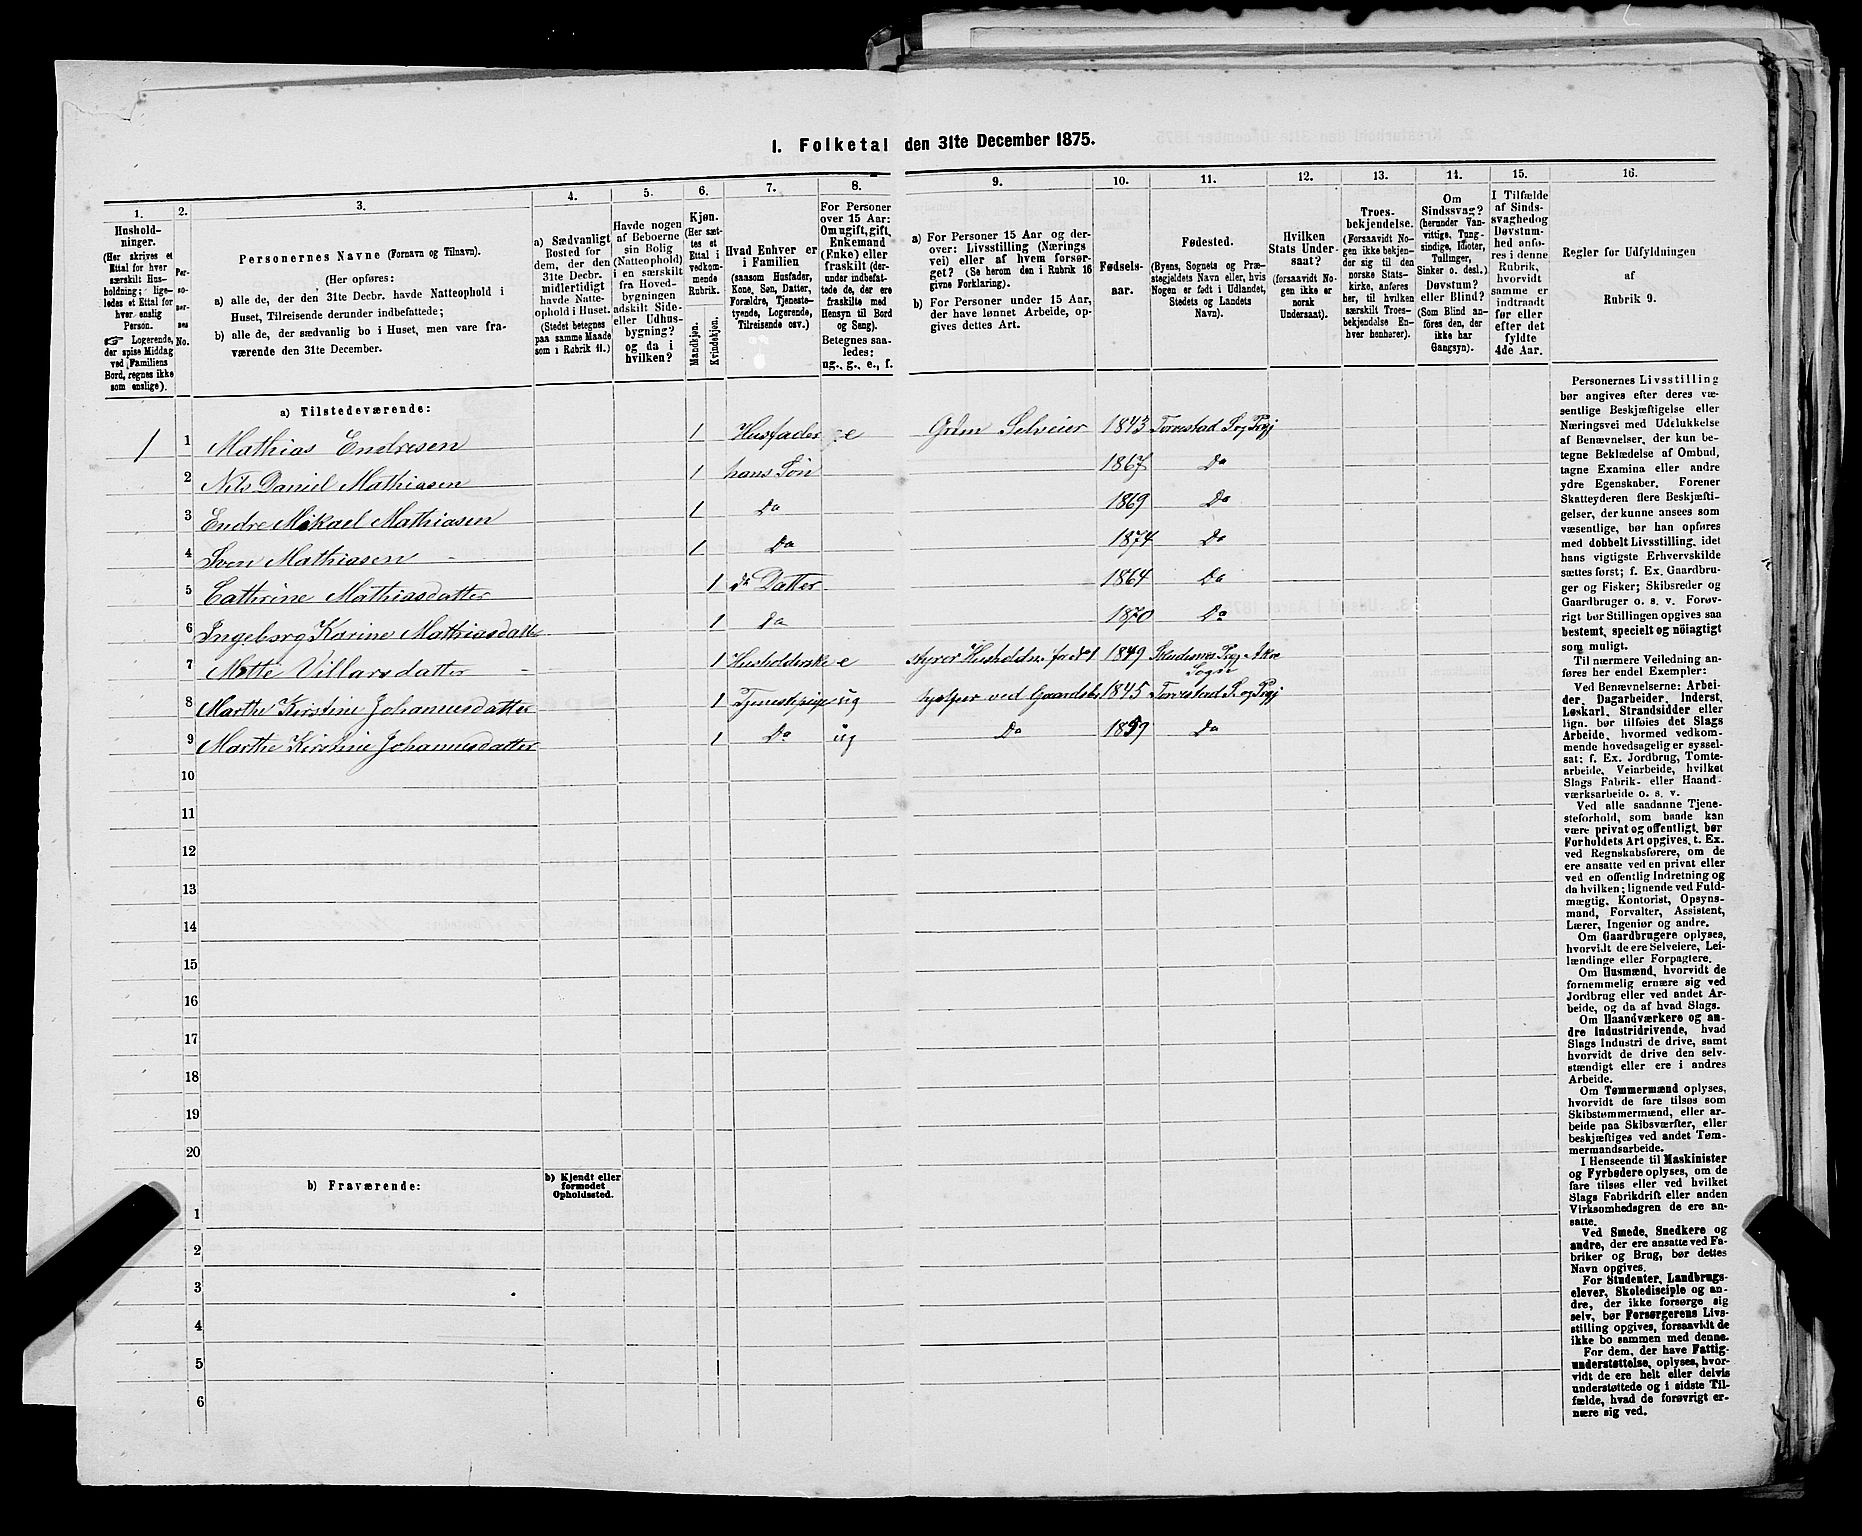 1. Folketal den 31te December 1875.
1. 2. 3. 4. 5. 6. 7. 8. 9. 10. 11. 12. 13. 14. 15. 16.
Husholdninger.
(Her skrives et
Ettal for hver
særskilt Husholdning;
ligeledes et Ettal for
hver enslig
Person.
☞ Logerende,
der spise Middag
ved Familiens
Bord, regnes ikke
som enslige).
Personernes No.
Personernes Navne (Fornavn og Tilnavn).
(Her opføres:
a) alle de, der den 31te Decbr. havde Natteophold i
Huset, Tilreisende derunder indbefattede;
b) alle de, der sædvanlig bo i Huset, men vare fra-
værende den 31te December.
a) Sædvanligt
Bosted for
dem, der den
31te Decbr.
midlertidigt
havde Natte-
ophold i Huset.
(Stedet betegnes
paa samme Maade
som i Rubrik 11.)
Havde nogen
af Beboerne
sin Bolig
(Natteophold)
i en særskilt
fra Hoved-
bygningen
adskilt Side-
eller Udhus-
bygning?
og da i
hvilken?
Kjøn.
(Her sæt-
tes et
Ettal i
vedkom-
mende
Rubrik.
Mandkjøn.
Kvindekjøn.
Hvad Enhver er
i Familien
(saasom Husfader,
Kone, Søn, Datter,
Forældre, Tjeneste-
tyende, Logerende,
Tilreisende osv.)
For Personer
over 15 Aar:
Om ugift, gift,
Enkemand
(Enke) eller
fraskilt (der-
under indbefat-
tede de, der ere
fraskilte med
Hensyn til Bord
og Seng).
Betegnes saa-
ledes:
ug., g., e., f.
a) For Personer 15 Aar og der-
over: Livsstilling (Nærings
vei) eller af hvem forsør-
get? (Se herom den i Rubrik 16
givne Forklaring).
b) For Personer under 15 Aar,
der have lønnet Arbeide, op-
gives dettes Art.
Fødsels-
aar.
Fødested.
(Byens, Sognets og Præ-
stegjeldets Navn eller, hvis
Nogen er født i Udlandet,
Stedets og Landets
Navn).
Hvilken
Stats Under-
saat?
(forsaavidt No-
gen ikke er
norsk
Undersaat).
Troes-
bekjendelse.
(Forsaavidt No-
gen ikke bekjen-
der sig til den
norske Stats-
kirke, anføres
her, til hvilken
særskilt Troes-
bekjendelse En-
hver henhører).
Om
Sindssvag?
(herunder Van-
vittige, Tung-
sindige, Idioter,
Tullinger,
Sinker o. desl.)
Døvstum?
eller Blind?
(Som Blind an-
føres den, der
ikke har
Gangsyn).
I Tilfælde
af Sinds-
svaghed og
Døvstum-
hed anfø-
res i denne
Rubrik,
hvorvidt
samme er
indtraadt
før eller
efter det
fyldte
4de Aar.
Regler for Udfyldningen
af
Rubrik 9.
a) Tilstedeværende:
1 1 Mathias Endresen 1 Husfader e Grdm Selveier 1843 Torvestad S og Pgj
2 Nils Daniel Mathiasen 1 hans Søn 1867 Do
3 Endre Mikael Mathiasen 1 Do 1869 Do
4 Sven Mathiasen 1 Do 1874 Do
5 Cathrine Mathiasdatter 1 ds Datter 1864 Do
6 Ingeborg Karine Mathiasdatter 1 Do 1870 Do
7 Mette Villarsdatter 1 Husholderske e styrer Husholdn. for No 1 1849 Skudesnes Pgj Akre
Sogn
8 Marthe Kirstine Johannesdatter 1 Tjenestepige ug hjelper ved Gaardsbr 1845 Torvestad S. og Pgj
9 Marthe Kirstine Johannesdatter 1 Do ug Do 1859 Do
10
11
12
13
14
15
16
17
18
19
20
b) Fraværende:
b) Kjendt eller
formodet
Opholdssted.
1
2
3
4
5
6
Personernes Livsstilling
bør angives efter deres væ-
sentlige Beskjæftigelse eller
Næringsvei med Udelukkelse
af Benævnelser, der kun be-
tegne Beklædelse af Ombud,
tagne Examina eller andre
ydre Egenskaber. Forener
Skatteyderen flere Beskjæfti-
gelser, der kunne ansees som
væsentlige, bør han opføres
med dobbelt Livsstilling, idet
hans vigtigste Erhvervskilde
sættes først; f. Ex. Gaardbru-
ger og Fisker; Skibsreder og
Gaardbruger o. s. v. Forøv-
rigt bør Stillingen opgives saa
bestemt, specielt og nøiagtigt
som muligt.
Til nærmere Veiledning an-
føres her endel Exempler:
Ved Benævnelserne: Arbei-
der, Dagarbeider, Inderst,
Løskarl, Strandsidder eller
lign. bør tilføies det Slags
Arbeide, hvormed vedkom-
mende hovedsagelig er syssel-
sat; f. Ex. Jordbrug, Tomte-
arbeide, Veiarbeide, hvilket
Slags Fabrik- eller Haand-
værksarbeide o. s. v.
Ved alle saadanne Tjene-
steforhold, som baade kan
være privat og offentligt, bør
Forholdets Art opgives, t. Ex.
ved Regnskabsførere, om de
ere ansatte ved en privat eller
ved en offentlig Indretning og
da hvilken; lignende ved Fuld-
mægtig, Kontorist, Opsyns-
mand, Forvalter, Assistent,
Lærer, Ingeniør og andre.
Om Gaardbrugere oplyses,
hvorvidt de ere Selveiere, Lei-
lændinge eller Forpagtere.
Om Husmænd, hvorvidt de
fornemmelig ernære sig ved
Jordbrug eller ved andet Ar-
beide, og da af hvad Slags.
Om Haandværkere og an-
dre Industridrivende, hvad
Slags Industri de drive, samt
hvorvidt de drive den selv-
stændigt eller ere i andres
Arbeide.
Om Tømmermænd oplyses,
hvorvidt de fare tilsøs som
Skibstømmermænd, eller ar-
beide paa Skibsværfter, eller
beskjæftiges ved andet Tøm-
mermandsarbeide.
I Henseende til Maskinister
og Fyrbødere oplyses, om de
fare tilsøs eller ved hvilket
Slags Fabrikdrift eller anden
Virksomhedsgren de ere an-
satte.
Ved Smede, Snedkere og
andre, der ere ansatte ved Fa-
briker og Brug, bør dettes
Navn opgives.
For Studenter, Landbrugs-
elever, Skoledisciple og an-
dre, der ikke forsørge sig
selv, bør Forsørgerens Livs-
stilling opgives, forsaavidt de
ikke bo sammen med denne.
For dem, der have Fattig-
understøttelse, oplyses, hvor-
vidt de ere helt eller delvis
understøttede og i sidste Til-
fælde, hvad de forøvrigt er-
nære sig ved.